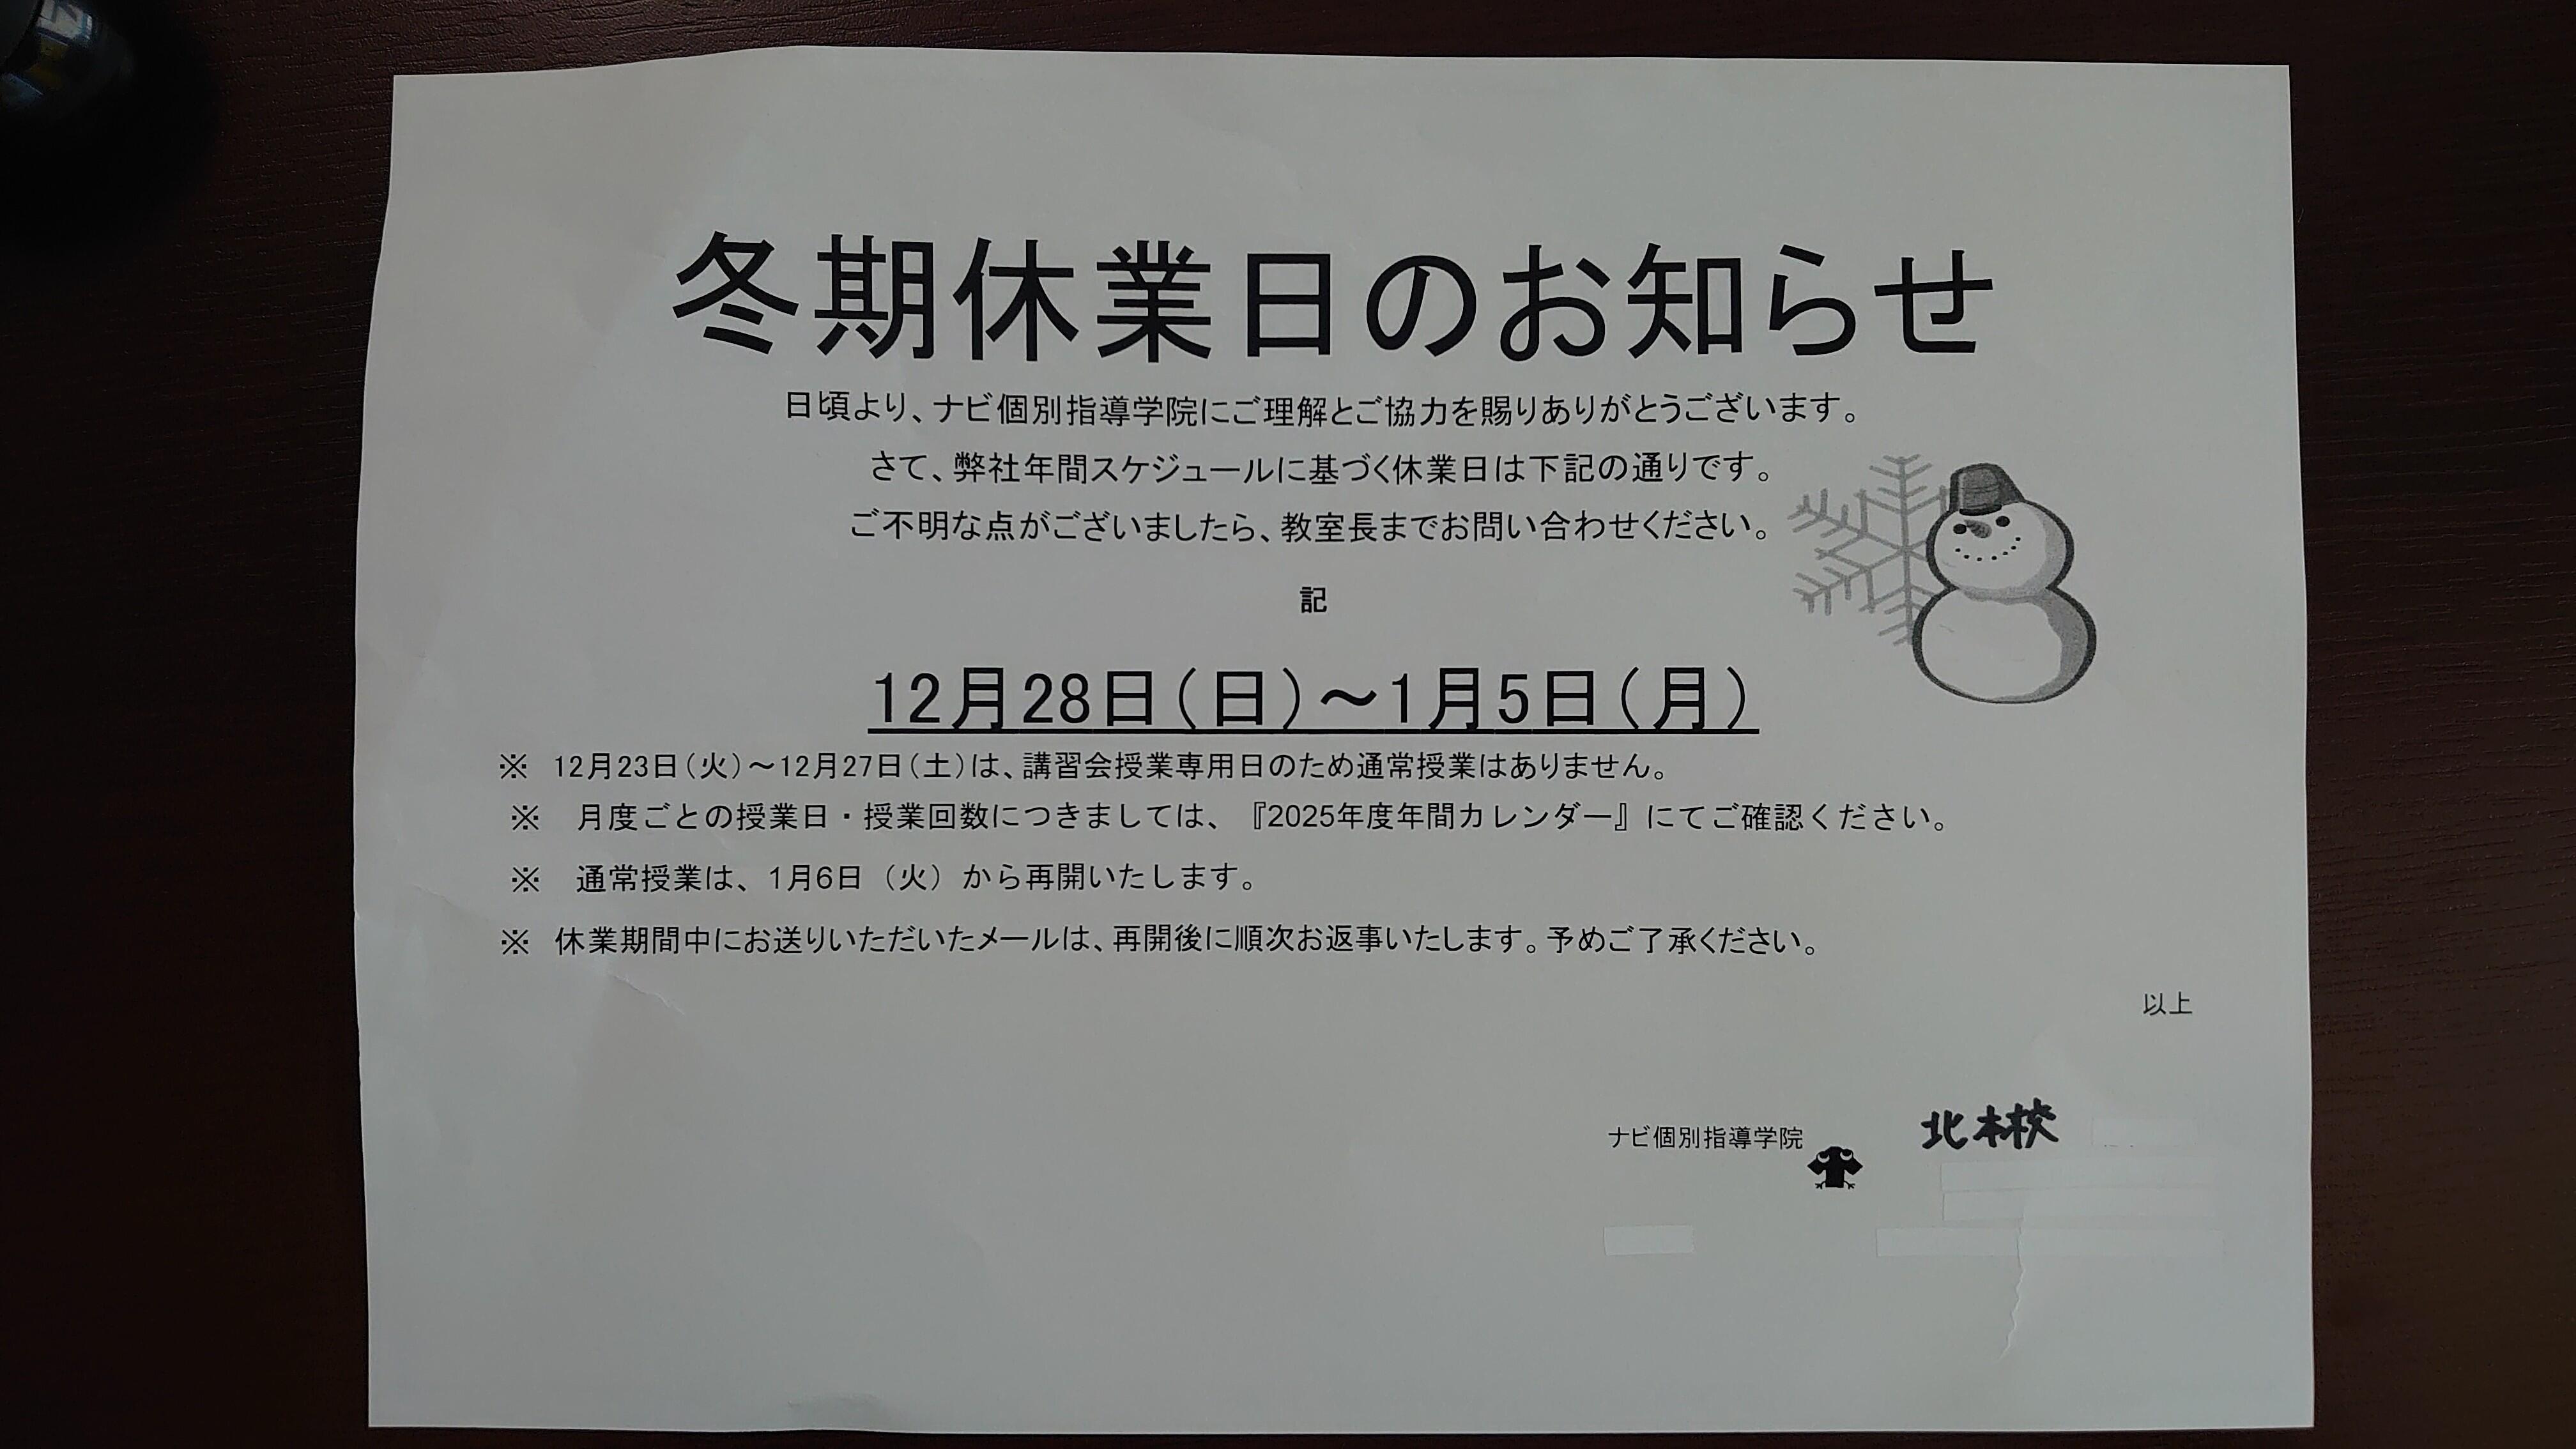 冬期休業日のお知らせ
日頃より、ナビ個別指導学院にご理解とご協力を賜りありがとうございます。
さて、弊社年間スケジュールに基づく休業日は下記の通りです。
ご不明な点がございましたら、教室長までお問い合わせください。
記
12月28日(日)～1月5日(月)
※ 12月23日(火)～12月27日(土)は、講習会授業専用日のため通常授業はありません。
※ 月度ごとの授業日・授業回数につきましては、『2025年度年間カレンダー』にてご確認ください。
※ 通常授業は、1月6日（火）から再開いたします。
※ 休業期間中にお送りいただいたメールは、再開後に順次お返事いたします。予めご了承ください。
以上
ナビ個別指導学院 北本校